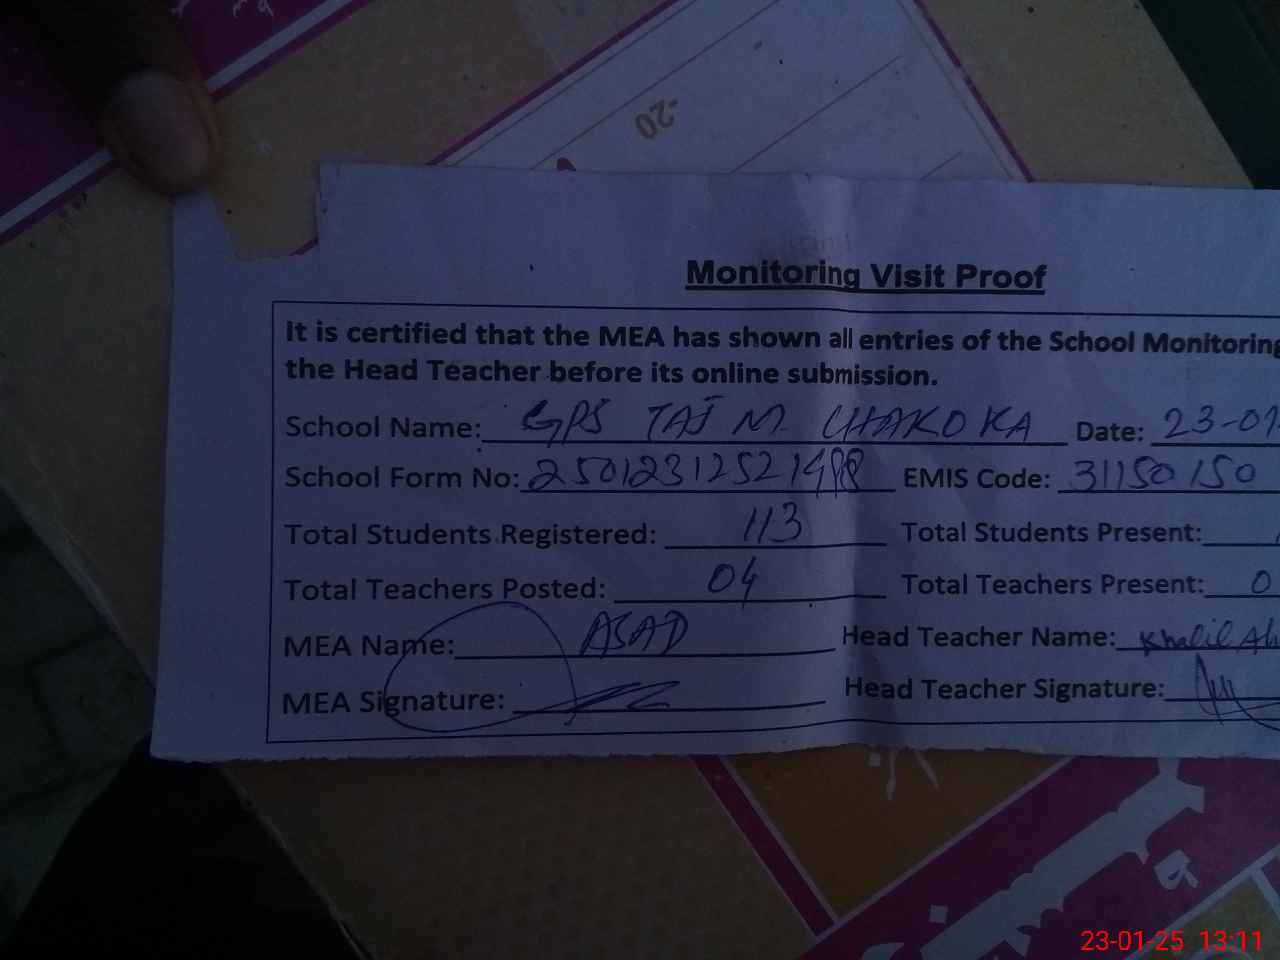 -20
Monitoring Visit Proof
It is certified that the MEA has shown all entries of the School Monitoring
the Head Teacher before its online submission.
School Name: GPS TAJ M. CHAKOKA Date: 23-01
School Form No: EMIS Code: 31150150
Total Students Registered: 113 Total Students Present:
Total Teachers Posted: 04 Total Teachers Present: 0
MEA Name: ASAD Head Teacher Name: Khalil
MEA Signature: Head Teacher Signature:
23-01-25 13:11